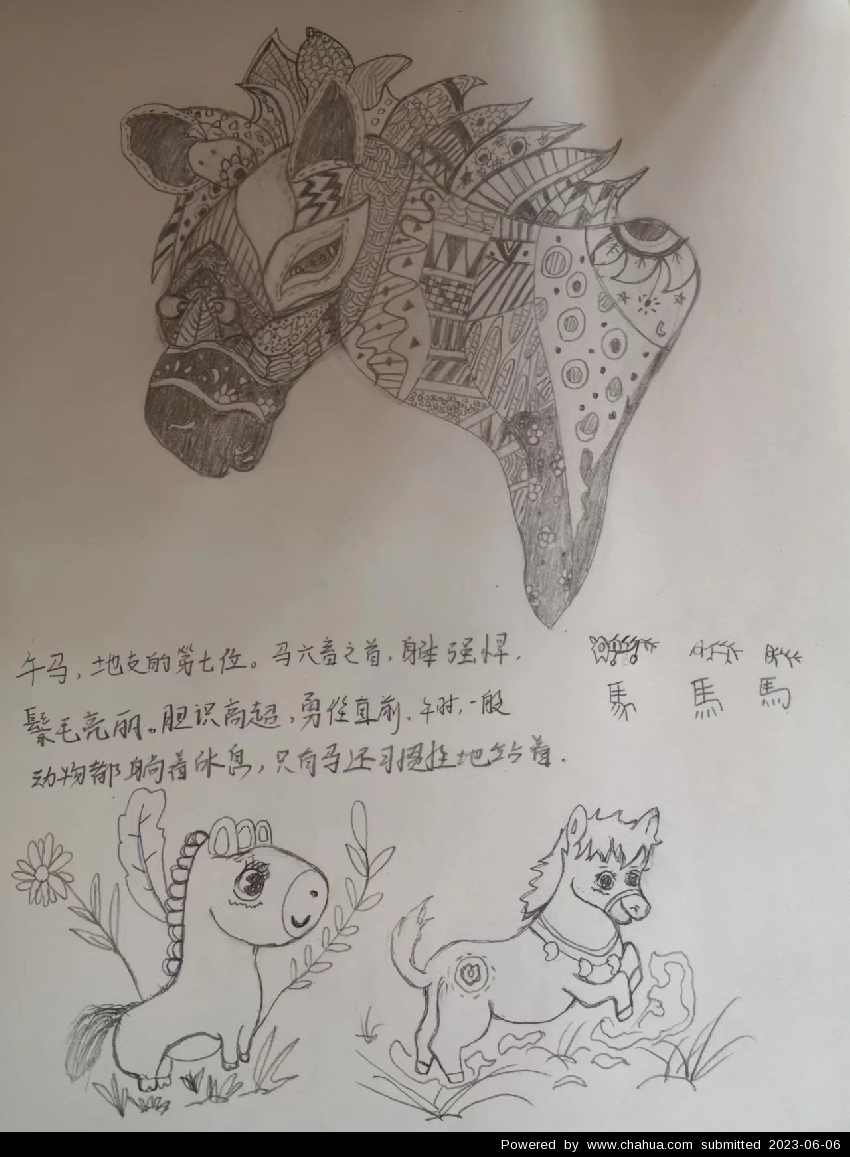 午马，地支的第七位。马六畜之首，身体强悍，
鬃毛亮丽。胆识高超，勇往直前。午时，一般
动物都躺着休息，只有马还习惯性地站着．
馬 馬 馬
Powered by www.chahua.com submitted 2023-06-06